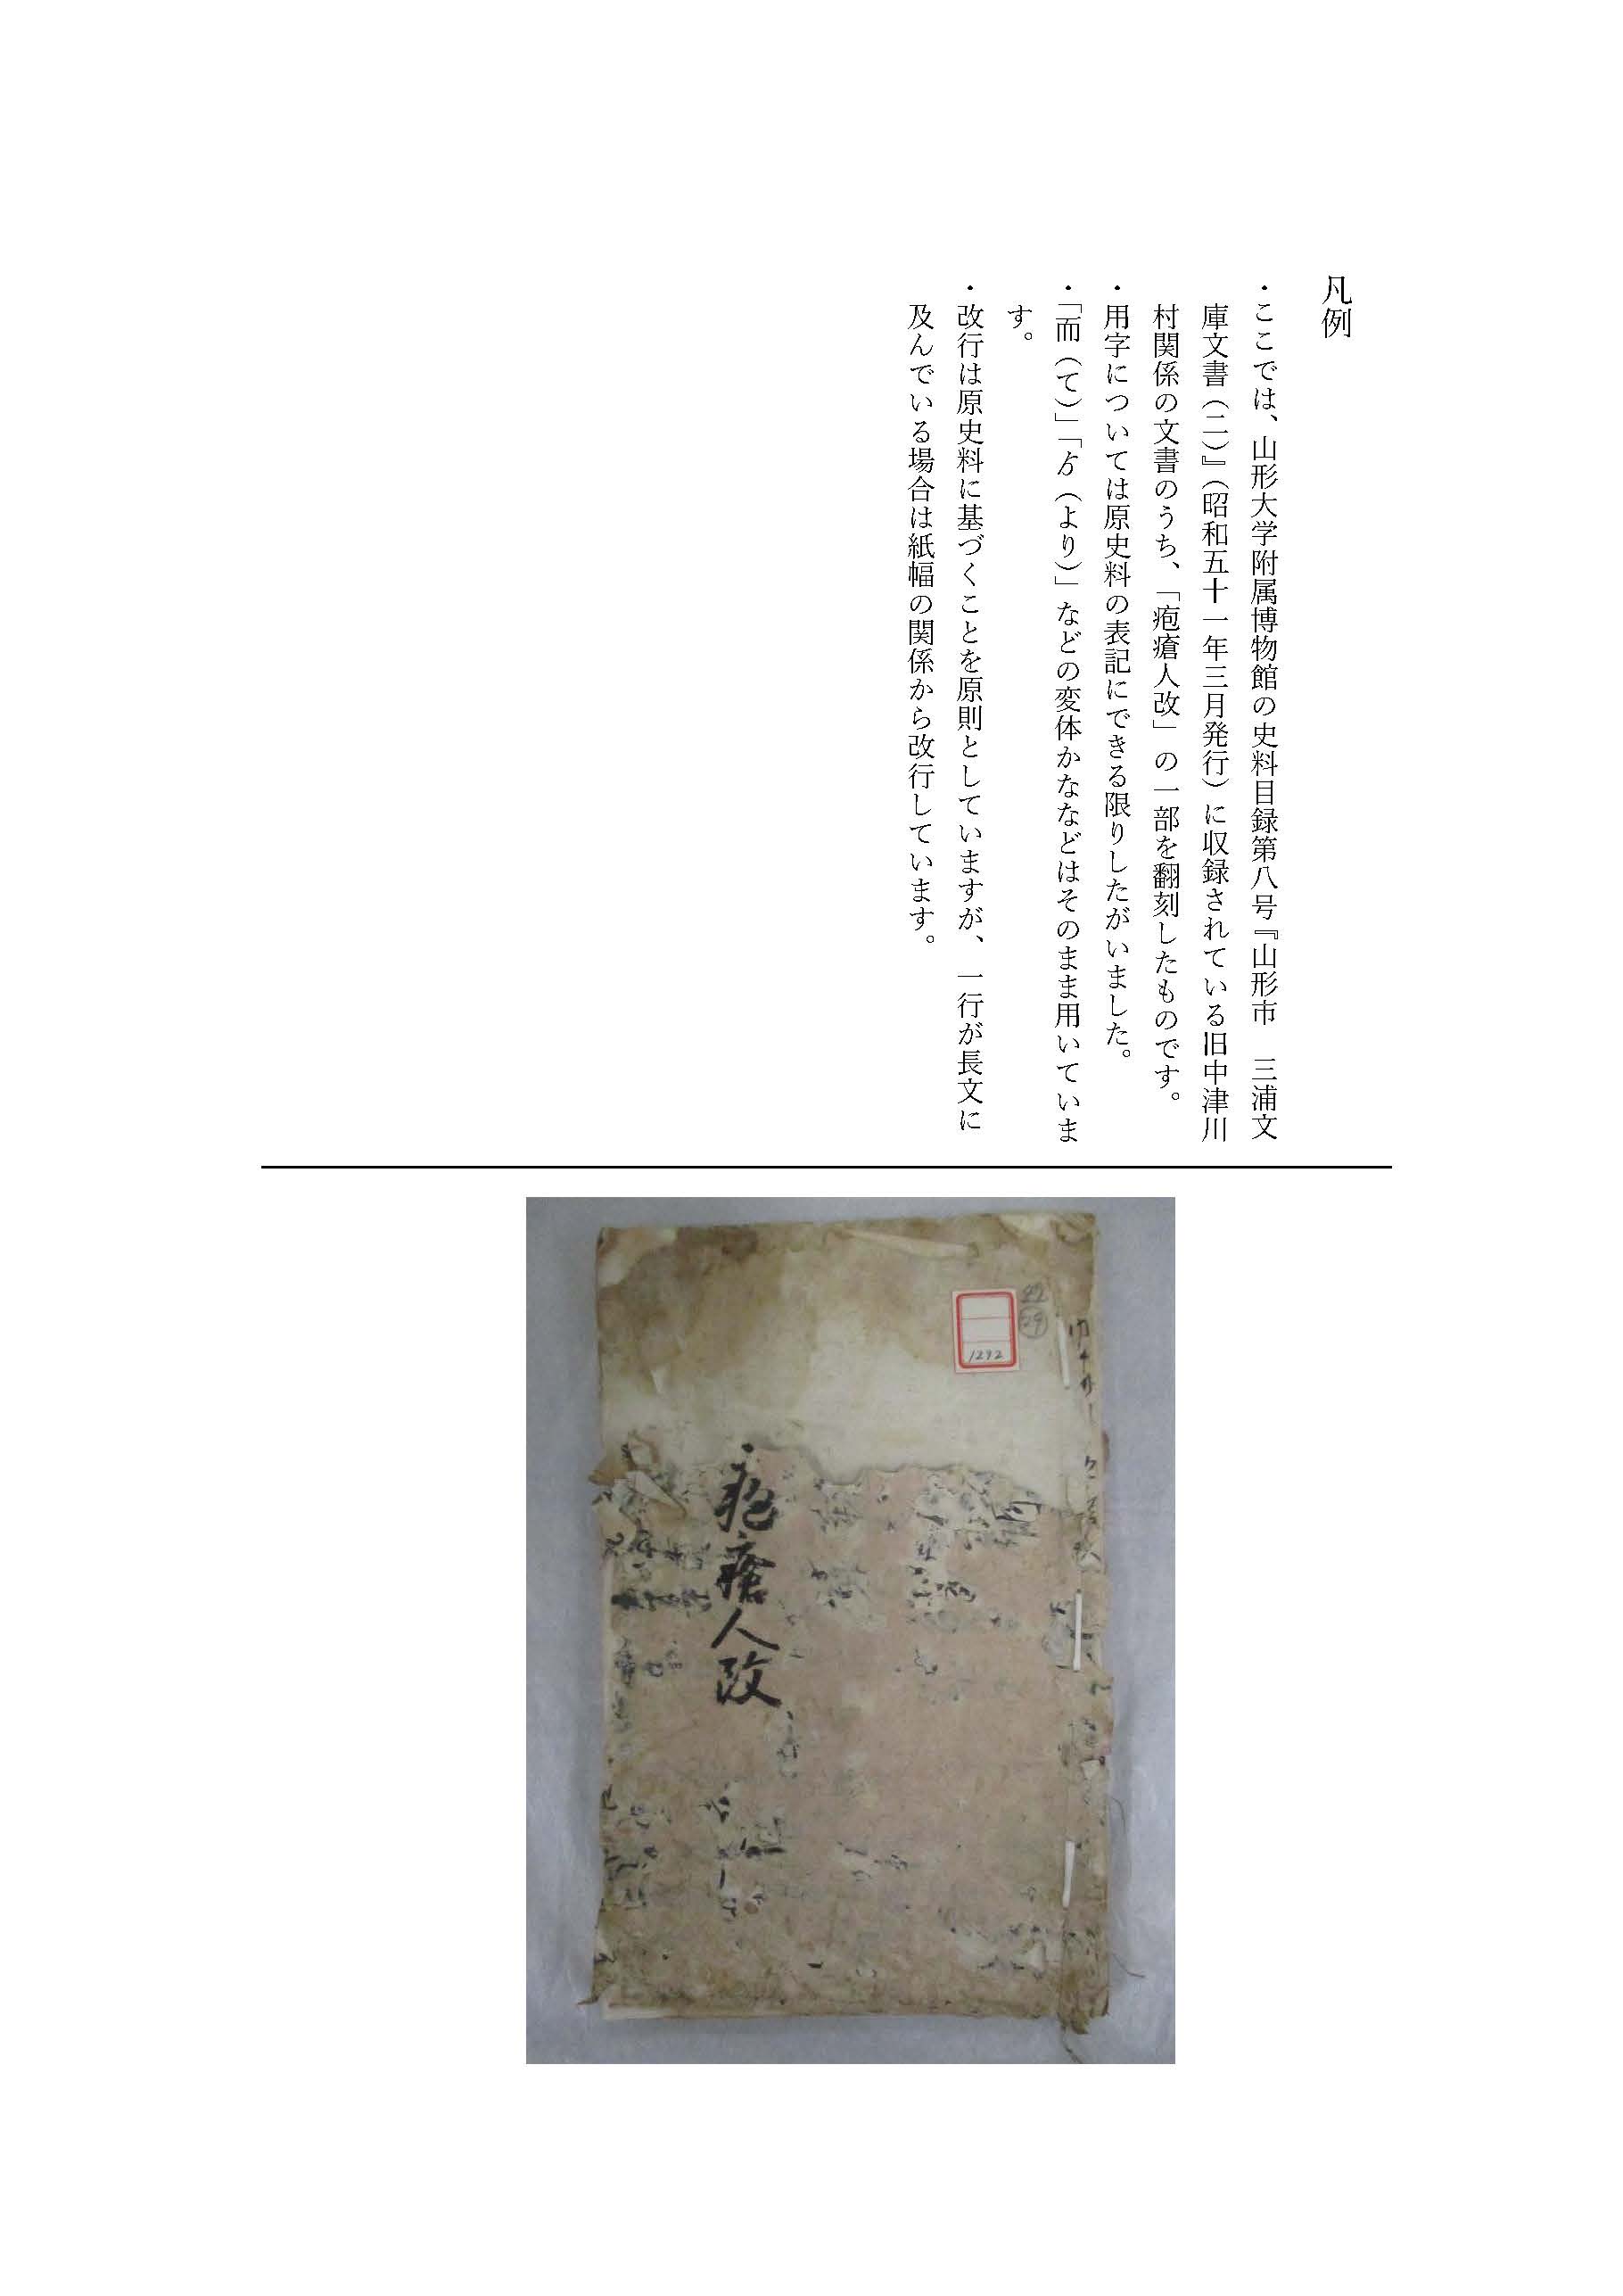 凡例
・ここでは、山形大学附属博物館の史料目録第八号『山形市　三浦文
庫文書（二）』（昭和五十一年三月発行）に収録されている旧中津川
村関係の文書のうち、「疱瘡人改」の一部を翻刻したものです。
・用字については原史料の表記にできる限りしたがいました。
・「而（て）」「ゟ（より）」などの変体かななどはそのまま用いていま
す。
・改行は原史料に基づくことを原則としていますが、一行が長文に
及んでいる場合は紙幅の関係から改行しています。
22
29
1292
疱瘡人改